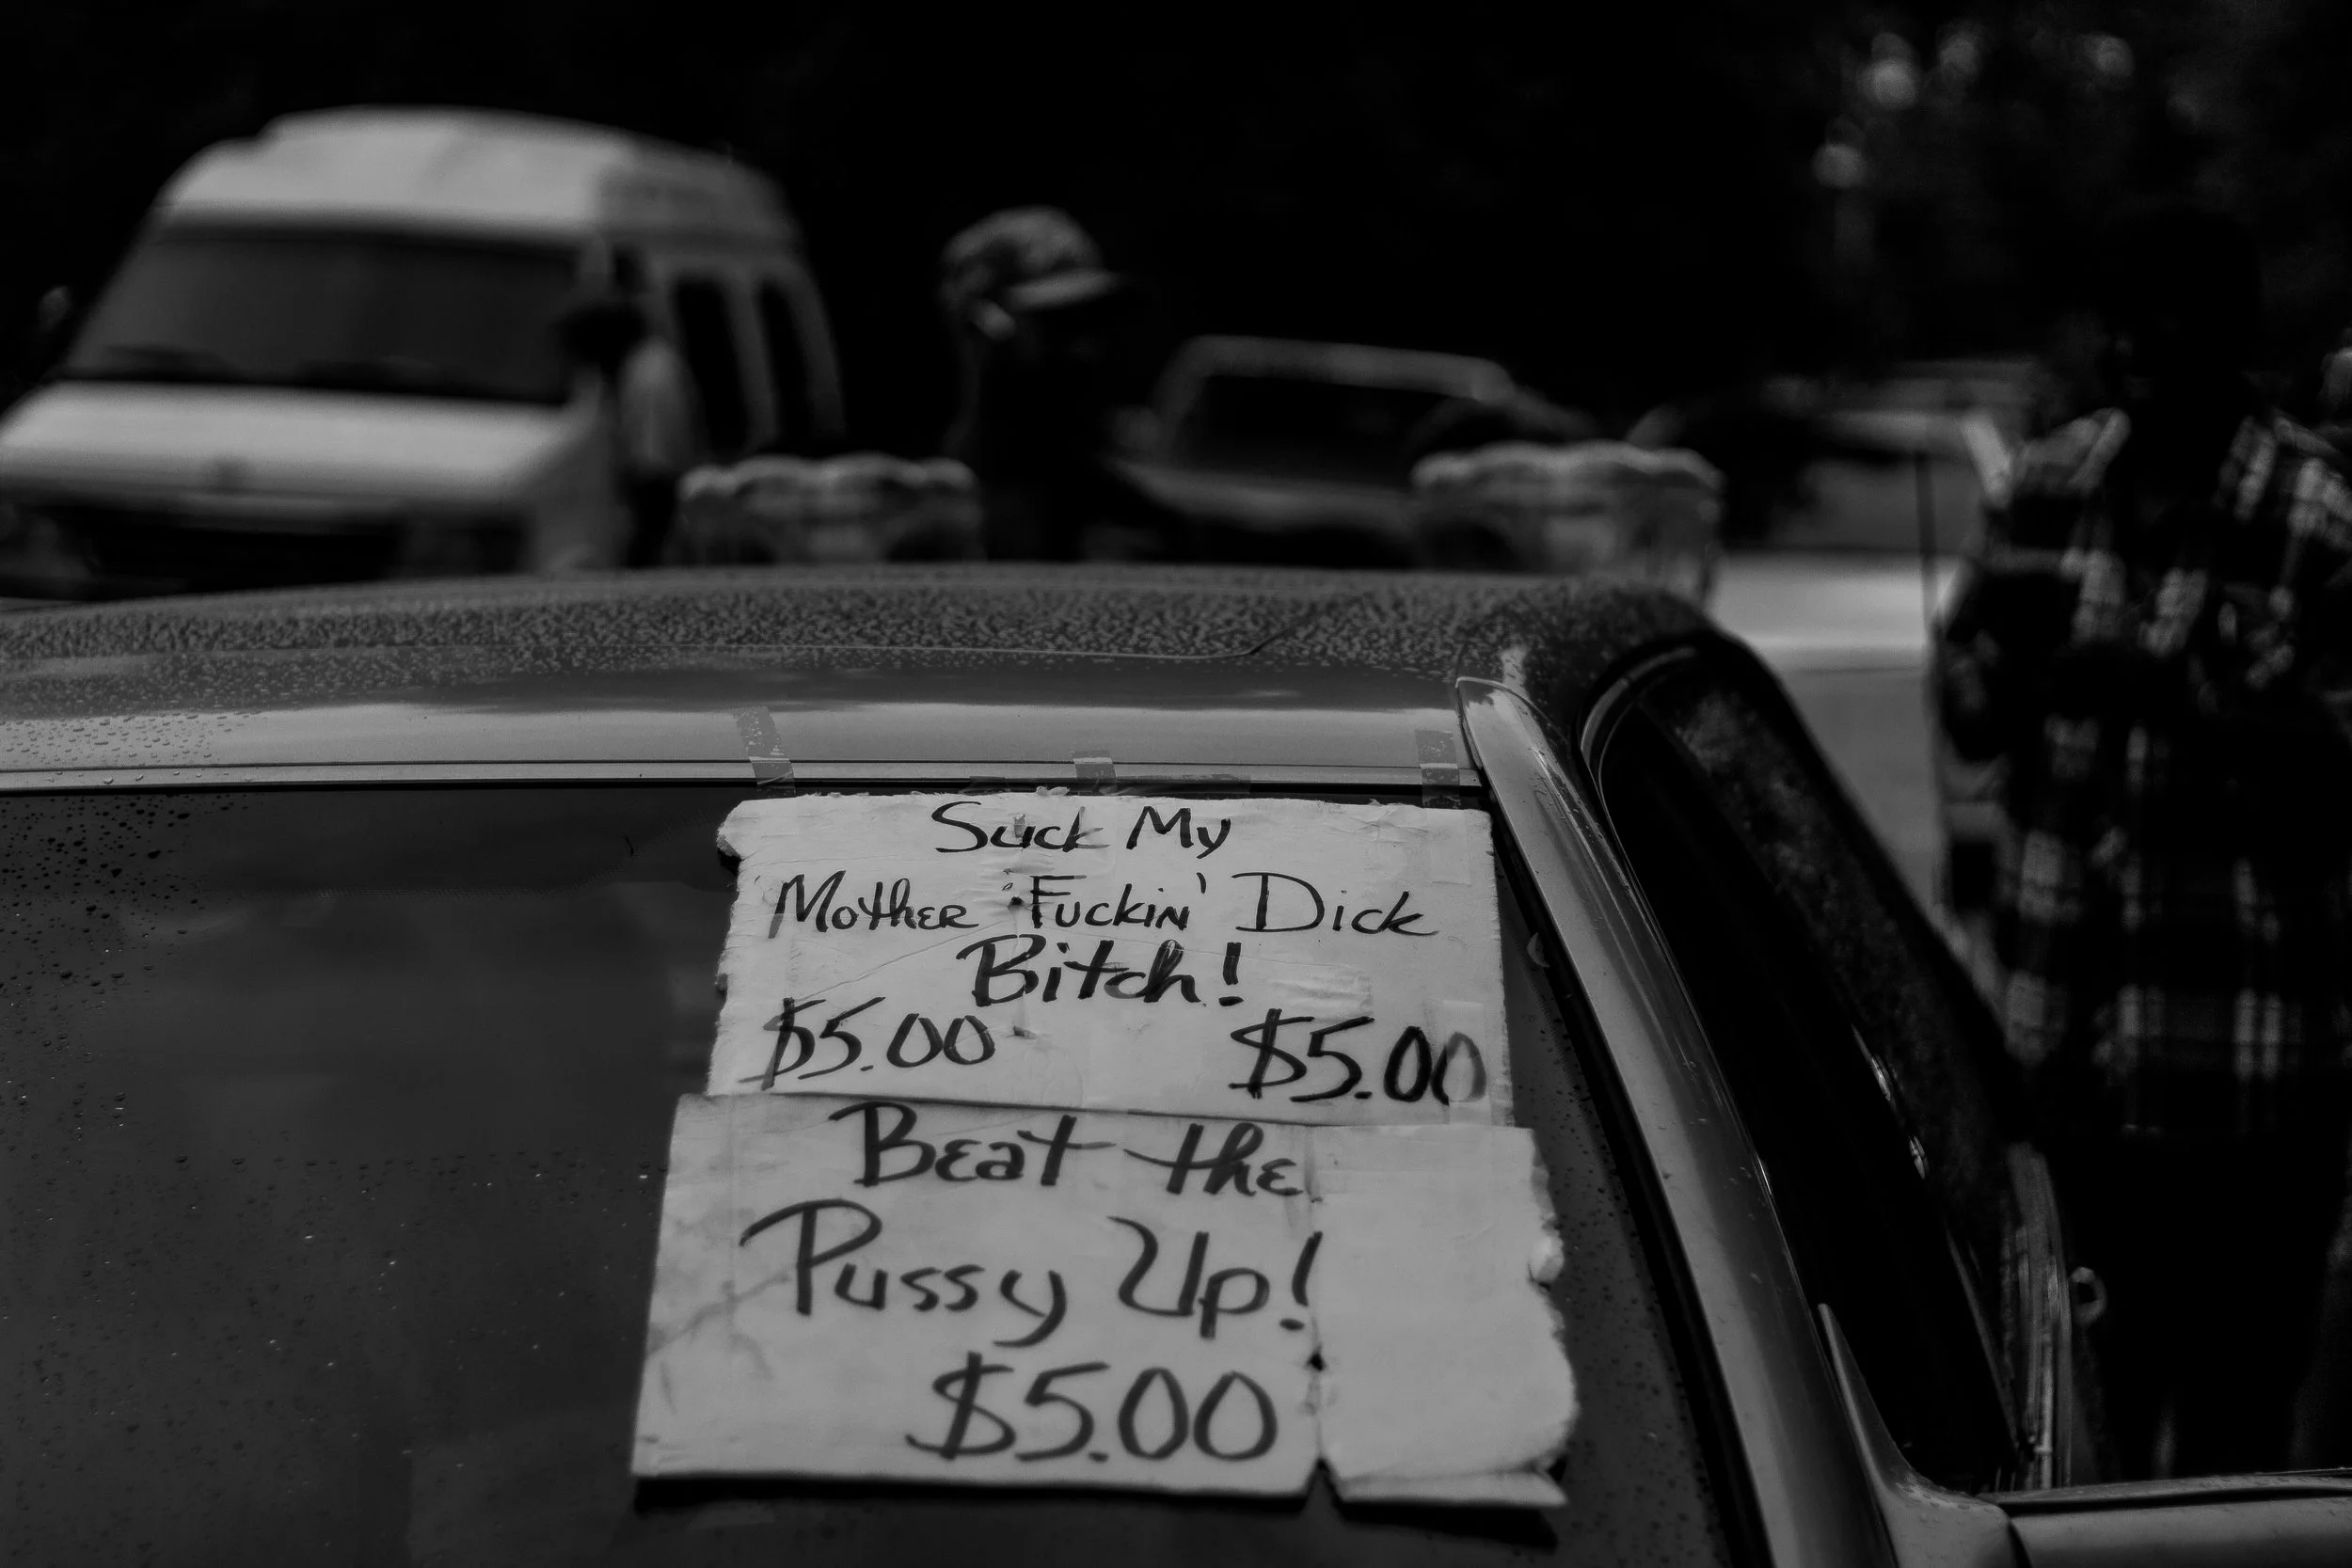 Suck My
Mother Fuckin' Dick
Bitch!
$5.00 $5.00
Beat the
Pussy Up!
$5.00